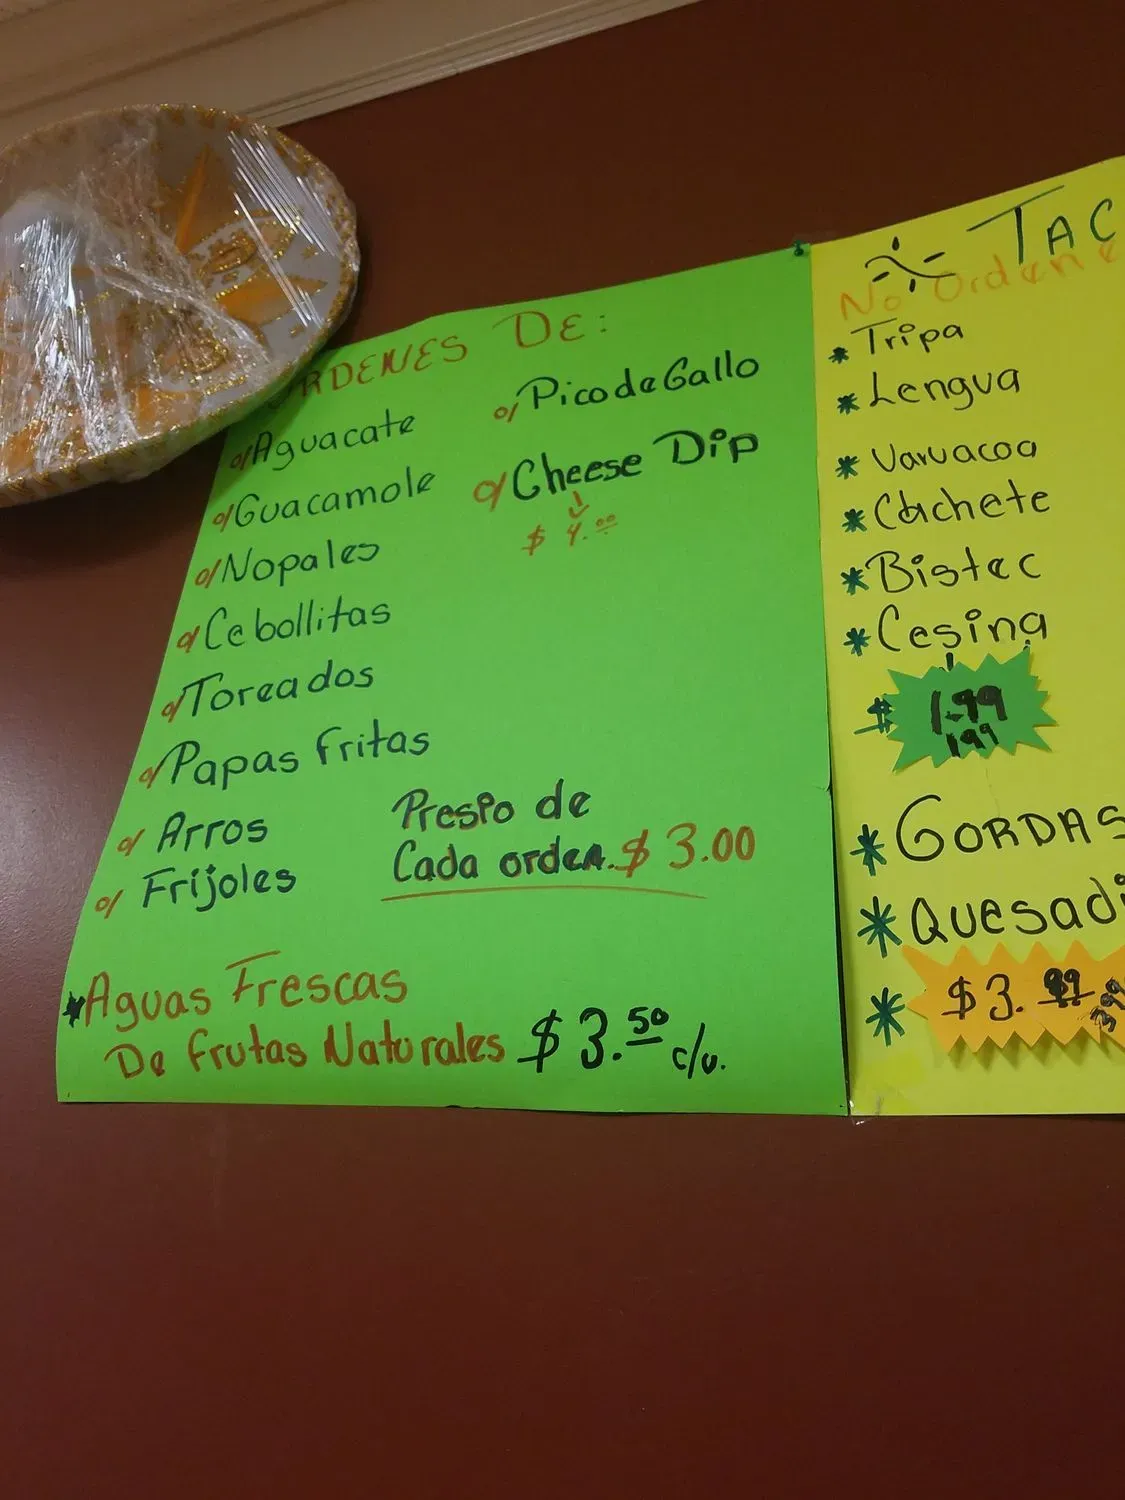 ORDENES DE:
o/ Aguacate
o/ Guacamole
o/ Nopales
o/ Cebollitas
o/ Toreados
o/ Papas fritas
o/ Arros
o/ Frijoles
o/ Pico de Gallo
o/ Cheese Dip
$ 4.00
Prespo de
Cada orden. $ 3.00
* Aguas Frescas
De frutas Naturales $ 3.50 c/u.
TAC
No Ordene
* Tripa
* Lengua
* Varvacoa
* Cachete
* Bistec
* Cesina
$ 1.99
1.99
* GORDAS
* Quesadi
* $ 3.99
3.99